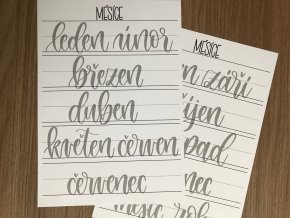 MĚSÍCE
leden únor
březen
duben
květen červen
červenec
MĚSÍCE
září
pad
nec
měsíc rok